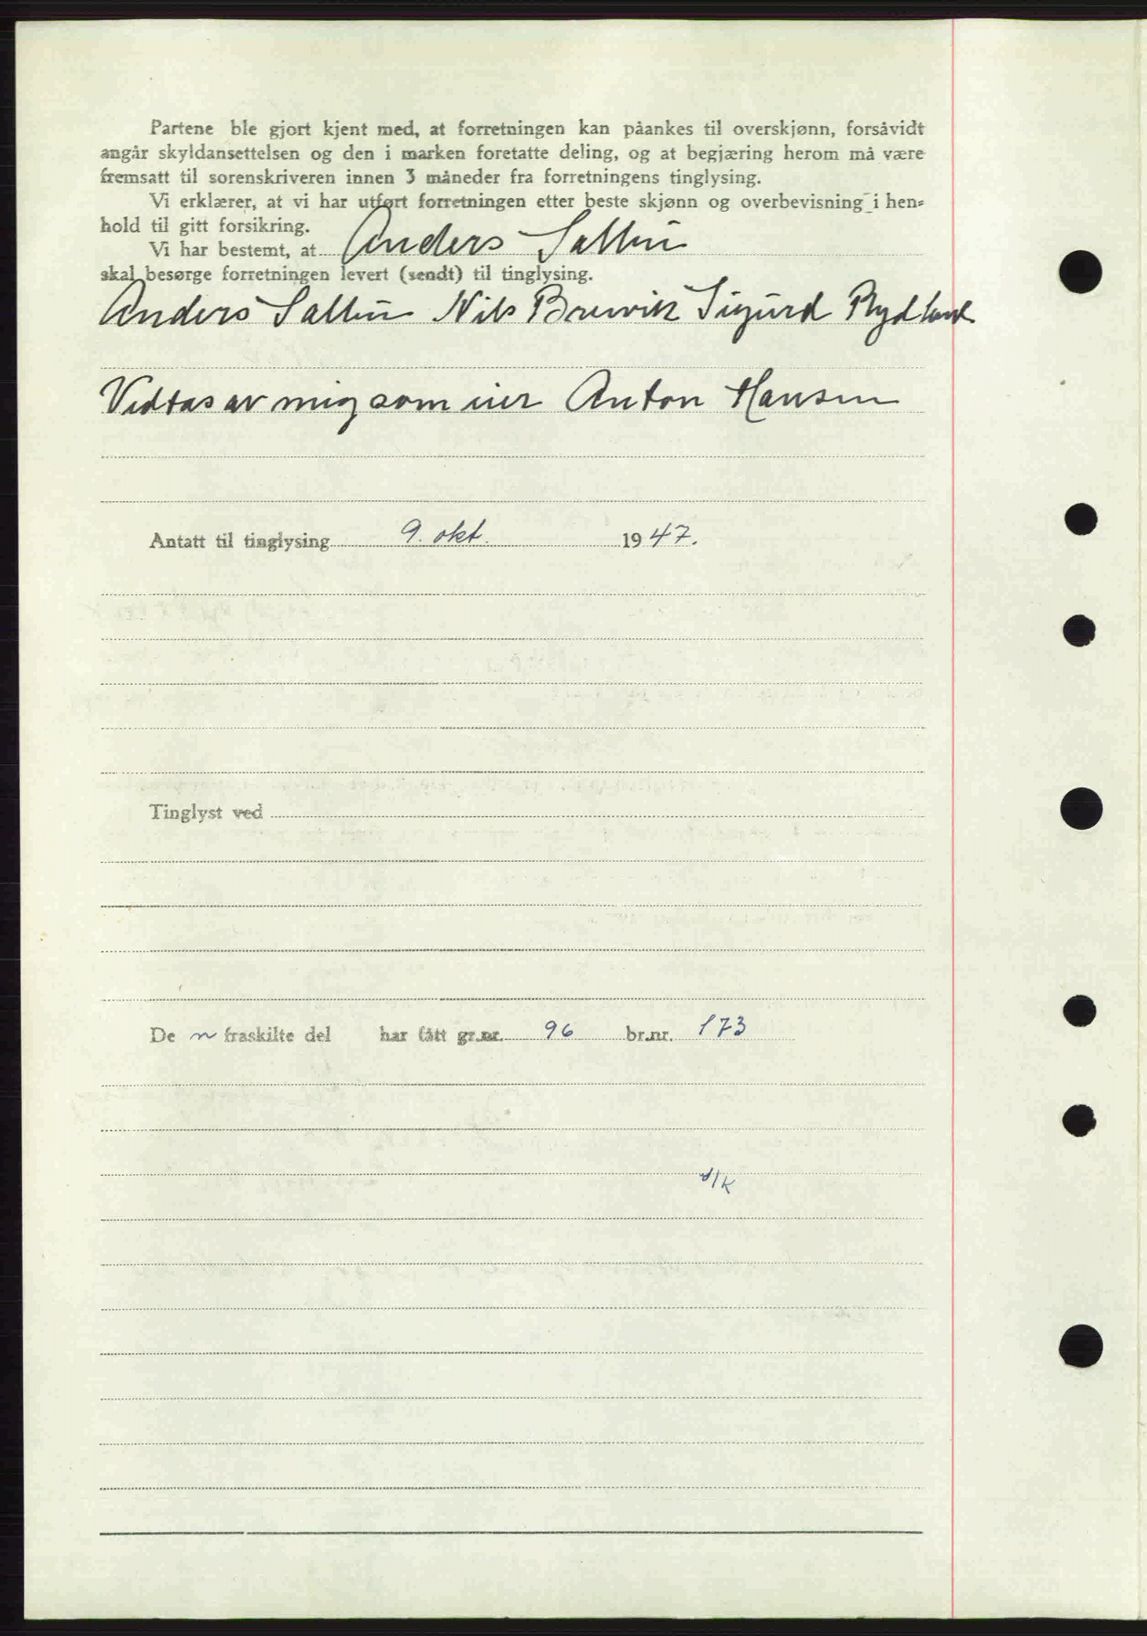 Partene ble gjort kjent med, at forretningen kan påankes til overskjønn, forsåvidt
angår skyldansettelsen og den i marken foretatte deling, og at begjæring herom må være
fremsatt til sorenskriveren innen 3 måneder fra forretningens tinglysing.
Vi erklærer, at vi har utført forretningen etter beste skjønn og overbevisning i hen-
hold til gitt forsikring.
Vi har bestemt, at Anders
skal besørge forretningen levert (sendt) til tinglysing.
Anders Nils Sigurd Rydland
Vedtas av mig som eier Anton Hansen
Antatt til tinglysing 9. okt. 1947.
Tinglyst ved
De n fraskilte del har fått gr.nr. 96 br.nr. 173